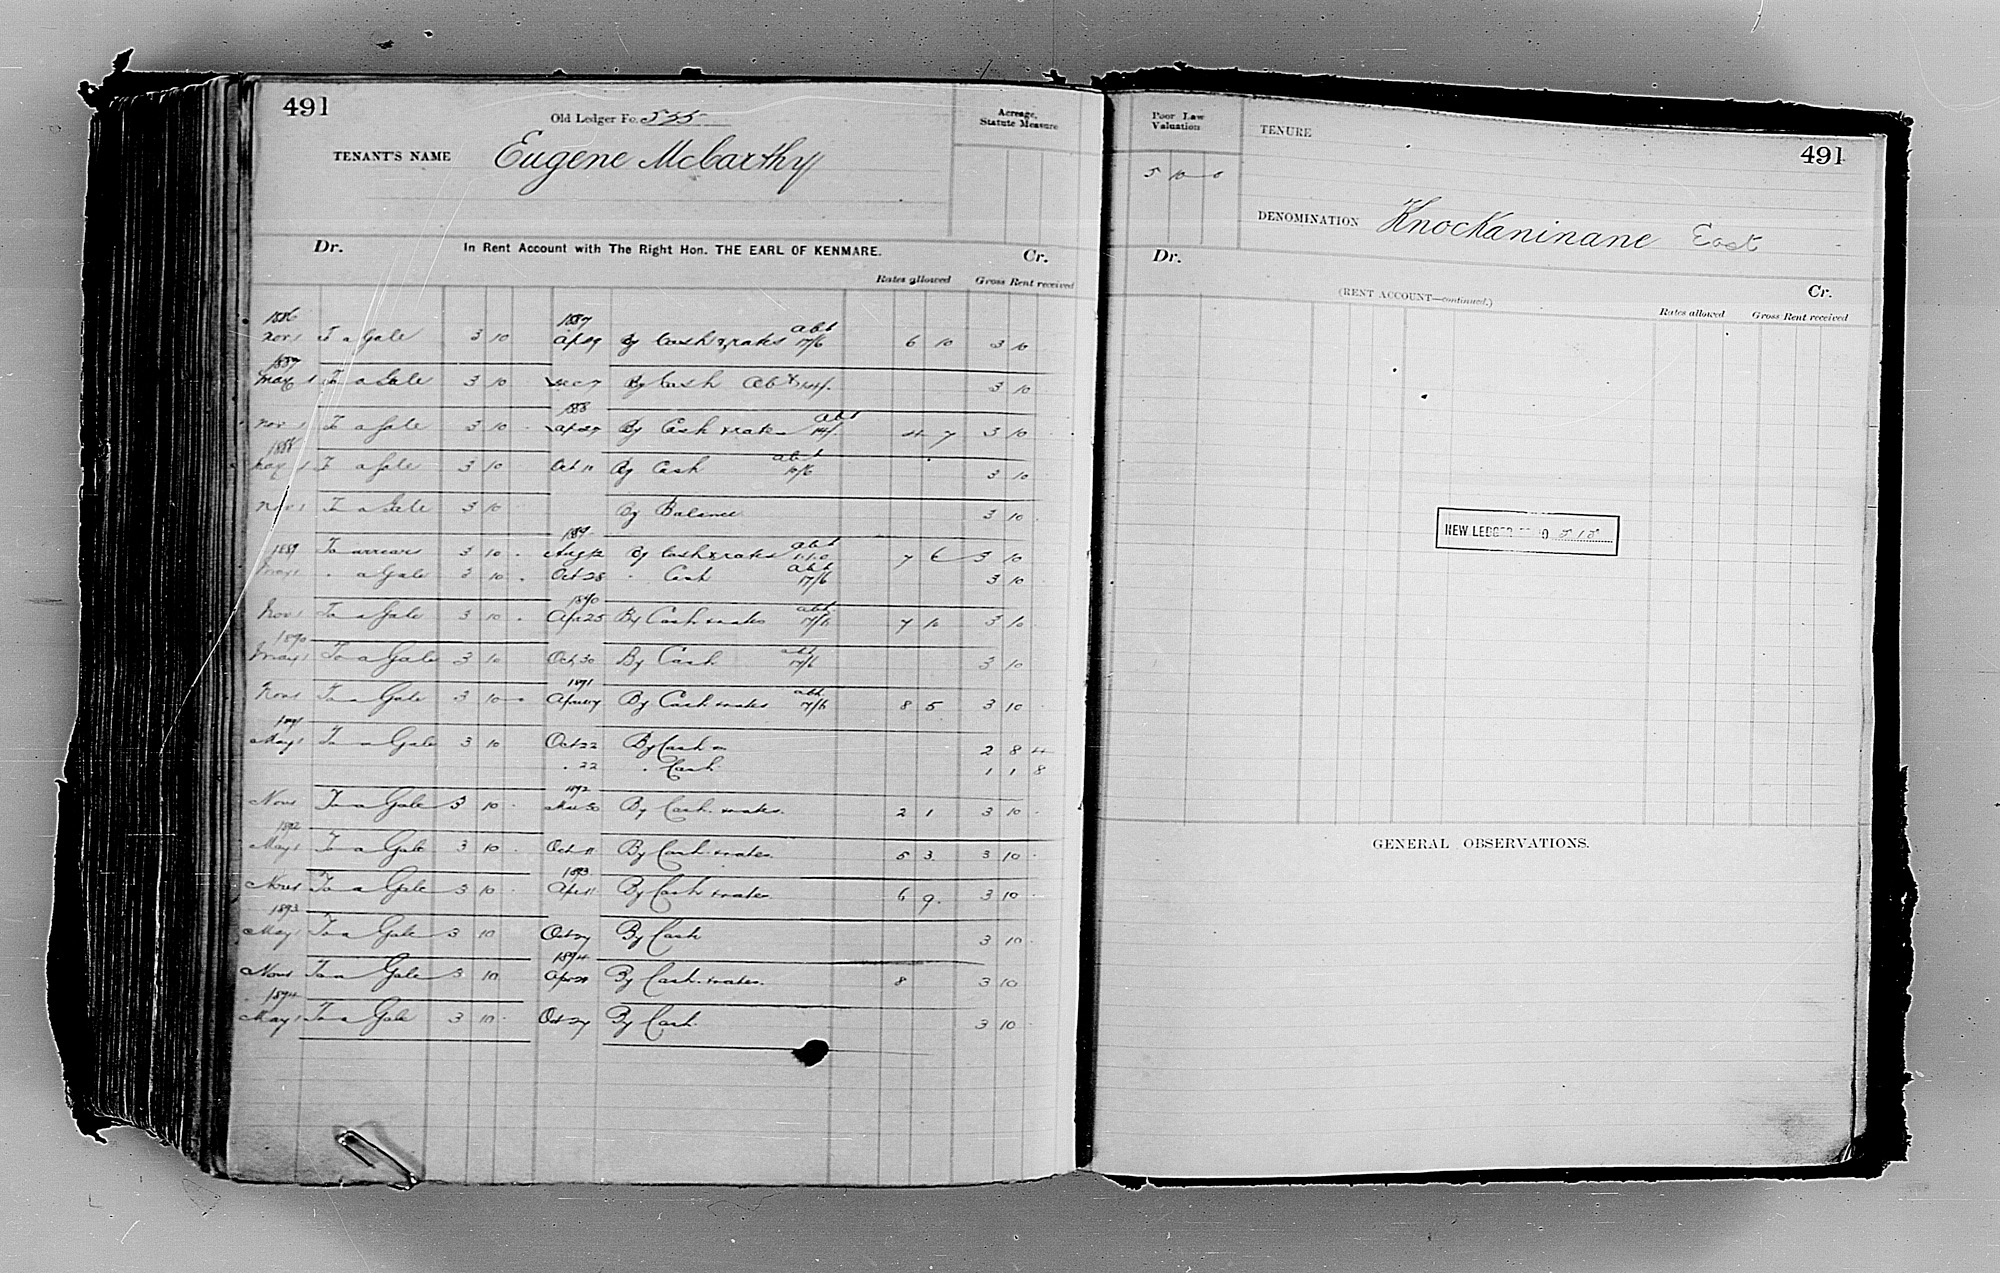 491
Old Ledger Fo. 555
TENANT'S NAME Eugene McCarthy
Acreage, Statute Measure
Dr. In Rent Account with The Right Hon. THE EARL OF KENMARE. Cr.
Rates allowed Gross Rent received
1886 1887
Nov 1 To a Gale 3 10 Ap 29 By Cash & rates abt 17/6 6 10 3 10
1887
May 1 To a Gale 3 10 Dec 7 By Cash abt 14/. 3 10
1888
Nov 1 To a Gale 3 10 Ap 27 By Cash & rates abt 14/. 4 7 3 10
1888
May 1 To a Gale 3 10 Oct 11 By Cash abt 10/6 3 10
Nov 1 To a Gale 3 10 By Balance 3 10
1889
To arrears 3 10 Aug 12 By Cash & rates abt 1.1.0 7 6 3 10
1889
May 1 " a Gale 3 10 Oct 28 " Cash abt 17/6 3 10
1890
Nov 1 To a Gale 3 10 Apr 25 By Cash & rates abt 17/6 7 10 3 10
1890
May 1 To a Gale 3 10 Oct 30 By Cash abt 17/6 3 10
1891
Nov 1 To a Gale 3 10 April 17 By Cash & rates abt 17/6 8 5 3 10
1891
May 1 To a Gale 3 10 Oct 22 By Cash 2 8 4
" 22 " Cash 1 1 8
1892
Nov 1 To a Gale 3 10 Mar 30 By Cash & rates. 2 1 3 10
1892
May 1 To a Gale 3 10 Oct 11 By Cash & rates. 5 3 3 10
1893
Nov 1 To a Gale 3 10 Apr 11 By Cash & rates 6 9 3 10
1893
May 1 To a Gale 3 10 Oct 27 By Cash 3 10
1894
Nov 1 To a Gale 3 10 Apr 28 By Cash & rates. 8 3 10
1894
May 1 To a Gale 3 10 Oct 27 By Cash 3 10
Poor Law Valuation
5 10 0
TENURE
491
DENOMINATION Knockaninane East
Dr. Cr.
(RENT ACCOUNT—continued.)
Rates allowed Gross Rent received
NEW LEDGER
GENERAL OBSERVATIONS.